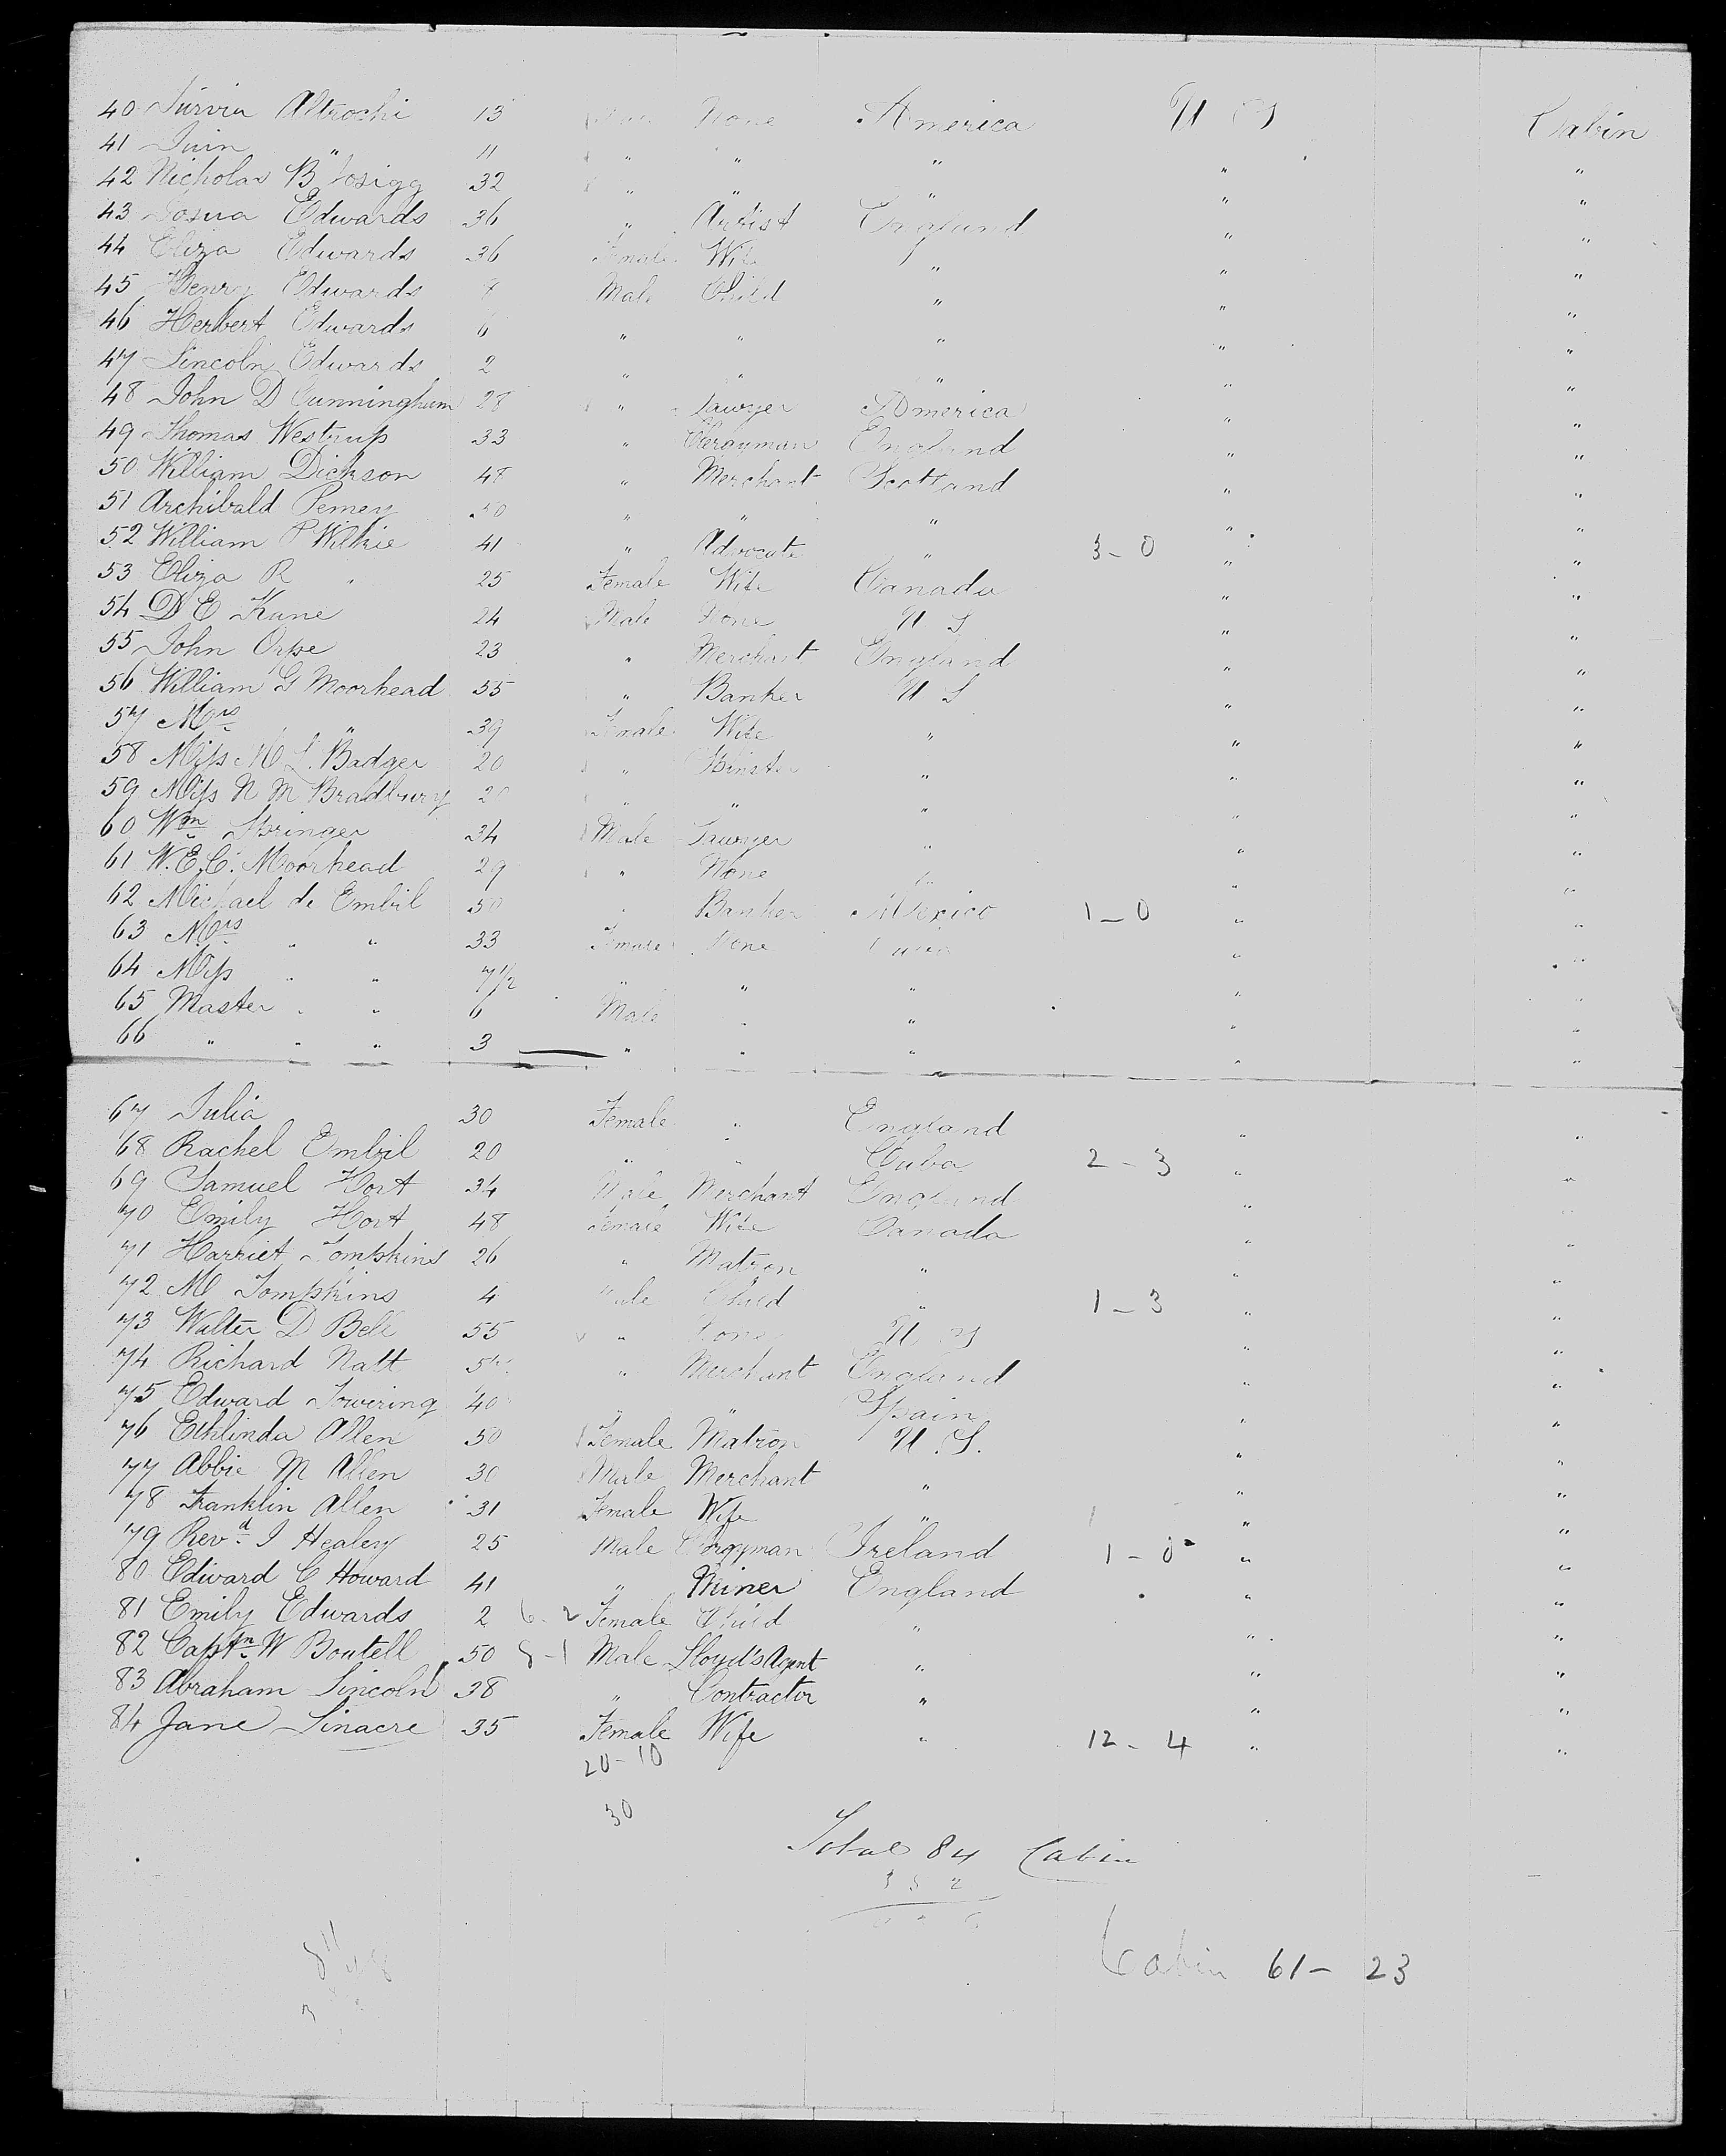 40 Survia Altrochi 13 None America U S Cabin
41 " 11 " " " " "
42 Nicholas B 32 " " " " "
43 Edwards 36 " Artist England " "
44 Eliza Edwards 36 Female Wife " " "
45 Henry Edwards Male Child " " "
46 Herbert Edwards 6 " " " " "
47 Lincoln Edwards 2 " " " " "
48 John D Cunningham 28 " Lawyer America " "
49 Thomas Westrup 33 " Clergyman England " "
50 William Dickson 48 " Merchant Scotland " "
51 Archibald " " " " "
52 William P Wilkie 41 " Advocate " 3-0 " "
53 Eliza R " 25 Female Wife Canada " "
54 D E Kane 24 Male None U S " "
55 John Orpe 23 " Merchant England " "
56 William G Moorhead 55 " Banker U S " "
57 Mrs " 39 Female Wife " " "
58 Miss M L Badger 20 " Spinster " " "
59 Miss N M Bradbury 20 " " " " "
60 Wm Springer 34 Male Lawyer " " "
61 W. E. C. Moorhead 29 " None " " "
62 Michael de Embil 50 " Banker Mexico 1-0 " "
63 Mrs " " 33 Female None " "
64 Miss " " 7 1/2 " " " " "
65 Master " " 6 Male " " " "
66 " " " 3 " " " " "
67 Julia 30 Female " England " "
68 Rachel Embil 20 " " Cuba 2-3 " "
69 Samuel Hort 34 Male Merchant England " "
70 Emily Hort 48 Female Wife Canada " "
71 Harriet Tompkins 26 " Matron " " "
72 M Tompkins 4 Male Child " 1-3 " "
73 Walter D Bell 55 " None U S " "
74 Richard Natt " Merchant England " "
75 Edward Towering 40 " " Spain " "
76 Ethlinda Allen 50 Female Matron U. S. " "
77 Abbie M Allen 30 Male Merchant " " "
78 Franklin Allen 31 Female Wife " " "
79 Revd I Healey 25 Male Clergyman Ireland 1-0 " "
80 Edward C Howard 41 " Miner England " "
81 Emily Edwards 2 6-2 Female Child " " "
82 Captn W Boutell 50 8-1 Male Lloyd's Agent " " "
83 Abraham Lincoln 38 " Contractor " " "
84 Jane Linacre 35 Female Wife " 12-4 " "
20-10
30
Total 84 Cabin
Cabin 61-23